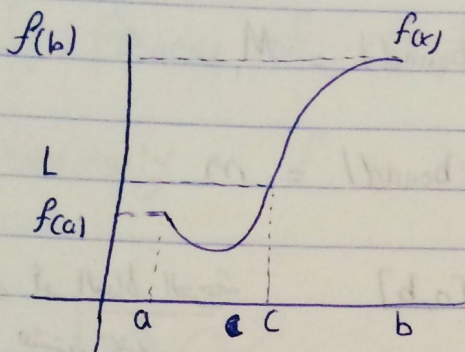 f(b) f(x)
L
f(a)
a c b